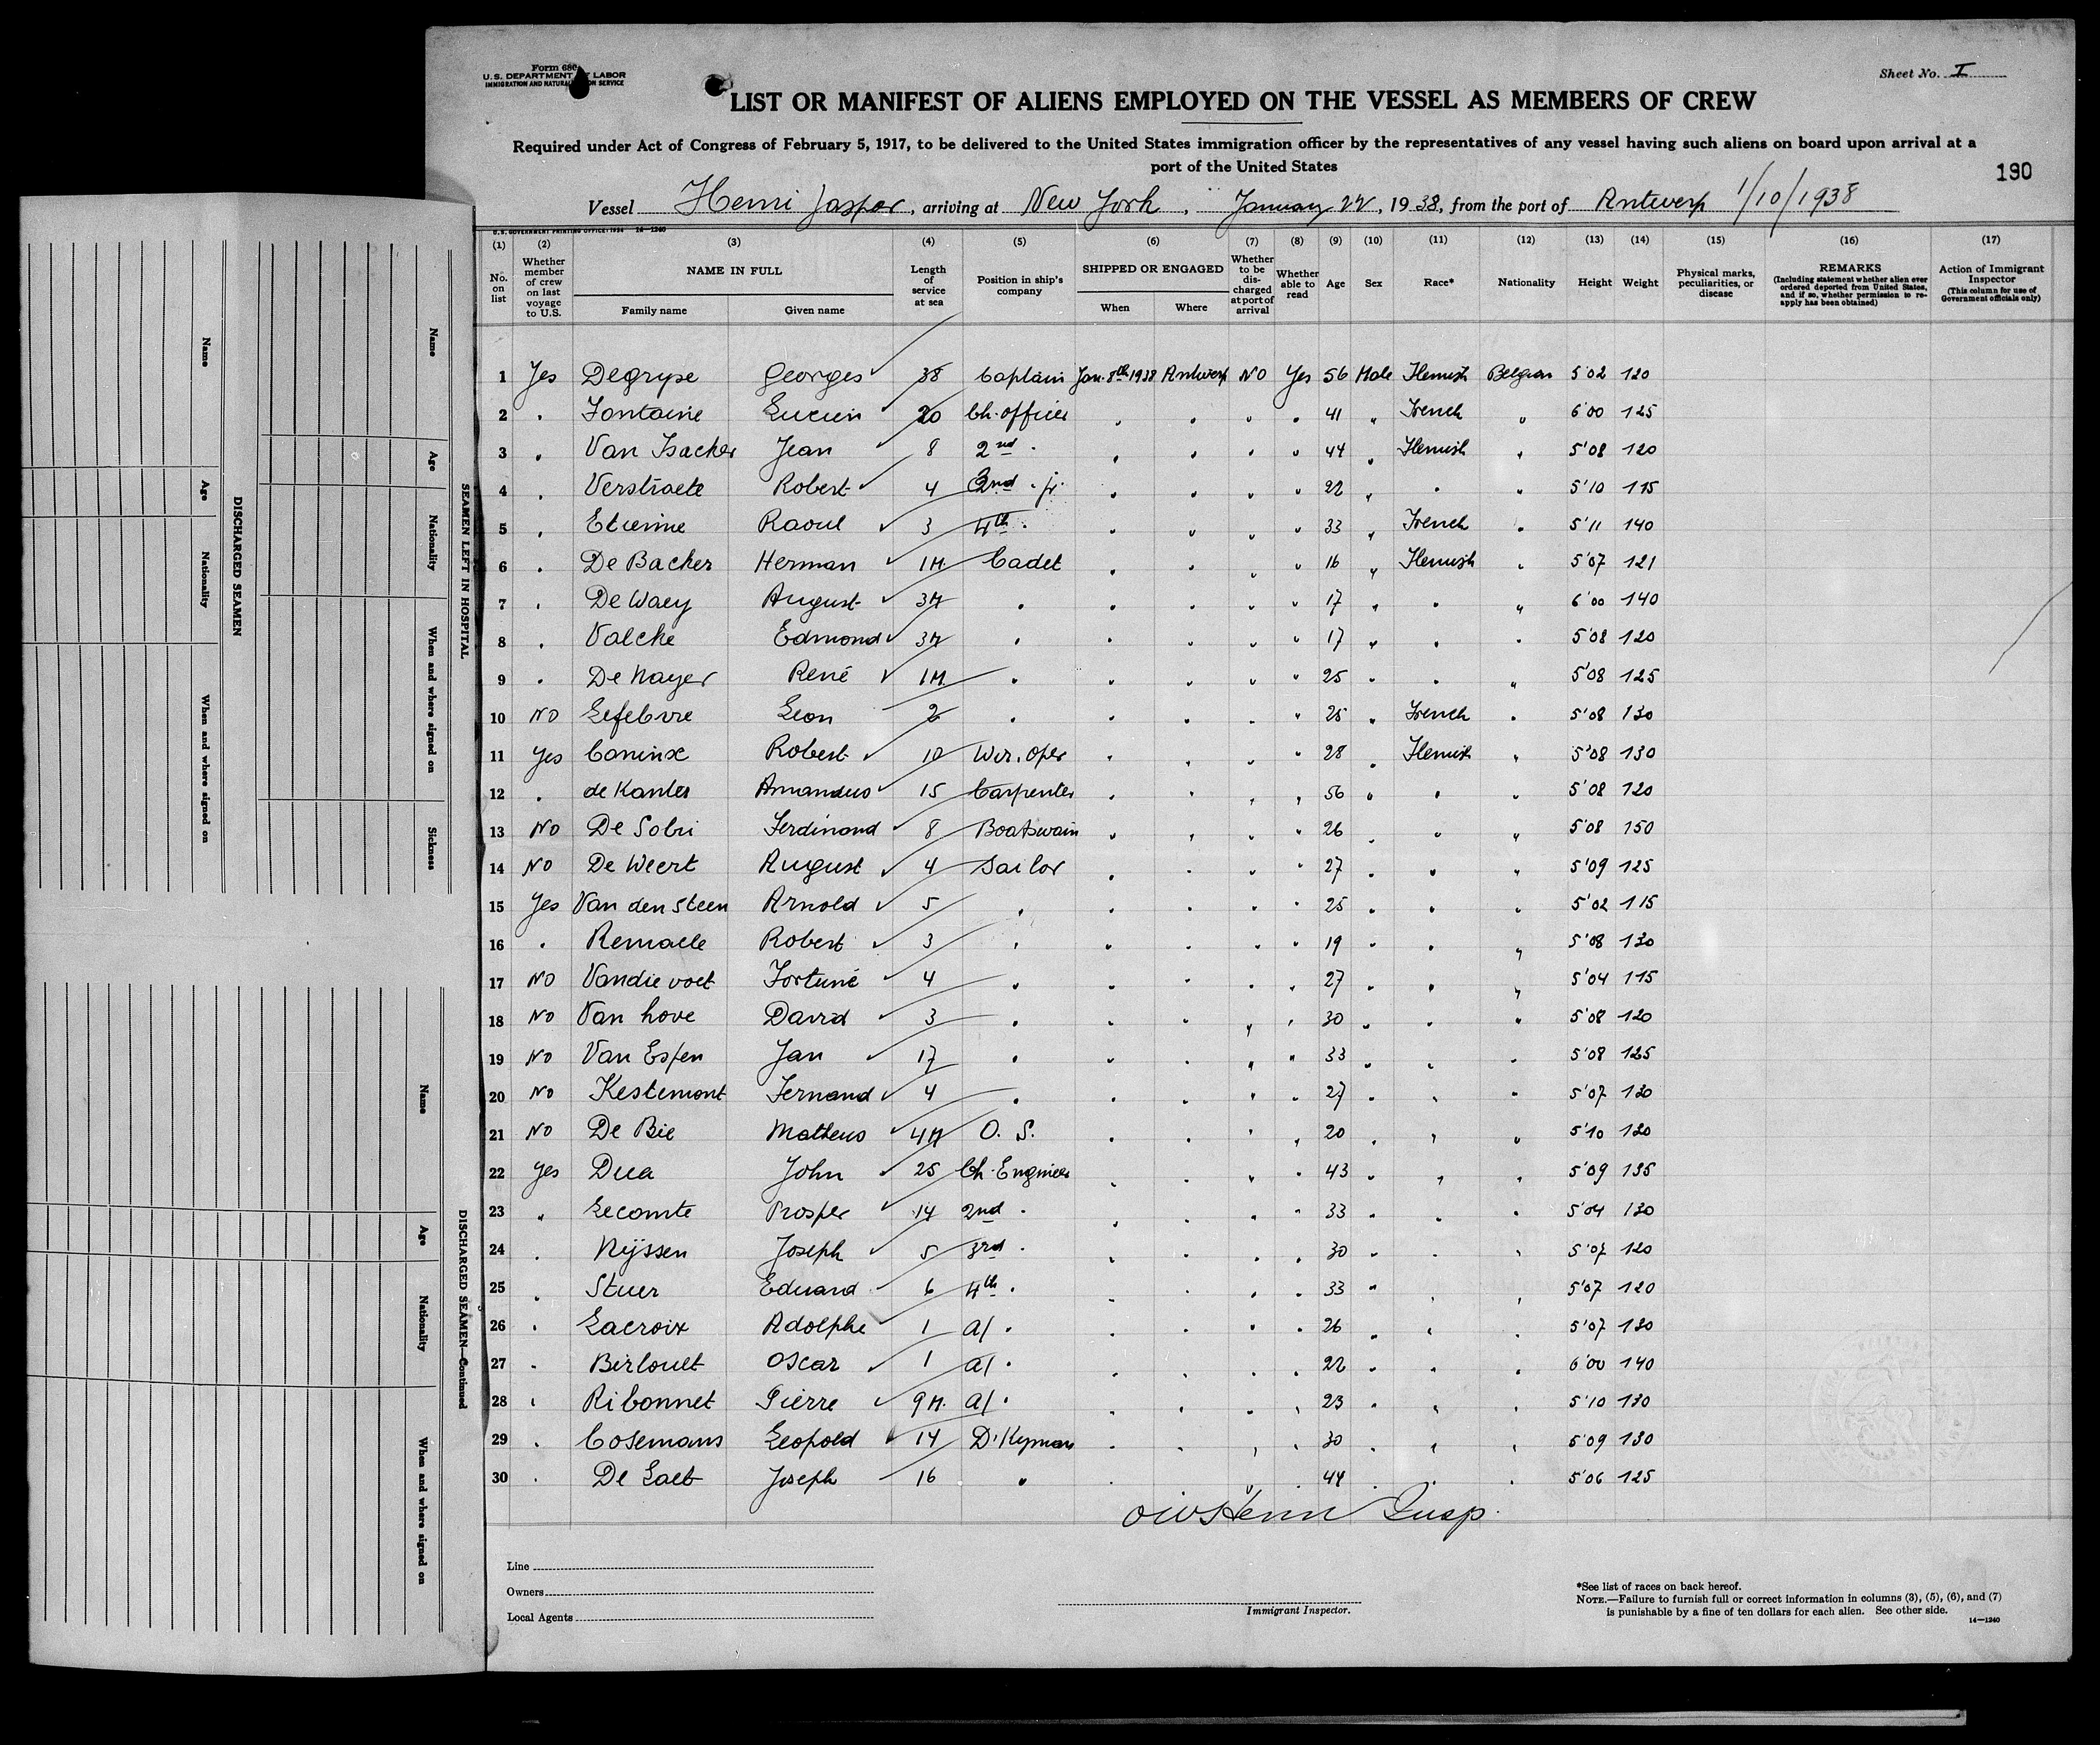 Form 680
U. S. DEPARTMENT OF LABOR
IMMIGRATION AND NATURALIZATION SERVICE
Sheet No. I
LIST OR MANIFEST OF ALIENS EMPLOYED ON THE VESSEL AS MEMBERS OF CREW
Required under Act of Congress of February 5, 1917, to be delivered to the United States immigration officer by the representatives of any vessel having such aliens on board upon arrival at a
port of the United States
190
Vessel Henri Jaspar, arriving at New York, January 22, 1938, from the port of Antwerp 1/10/1938
U. S. GOVERNMENT PRINTING OFFICE: 1934 14—1240
(1) (2) (3) (4) (5) (6) (7) (8) (9) (10) (11) (12) (13) (14) (15) (16) (17)
No. on list
Whether member of crew on last voyage to U.S.
NAME IN FULL
Family name
Given name
Length of service at sea
Position in ship's company
SHIPPED OR ENGAGED
When
Where
Whether to be discharged at port of arrival
Whether able to read
Age
Sex
Race*
Nationality
Height
Weight
Physical marks, peculiarities, or disease
REMARKS
(Including statement whether alien ever ordered deported from United States, and if so, whether permission to reapply has been obtained)
Action of Immigrant Inspector
(This column for use of Government officials only)
1 Yes Degryse Georges 38 Captain Jan. 8th 1938 Antwerp NO Yes 56 Male Flemish Belgian 5'02 120
2 " Fontaine Lucien 20 Ch. officer " " " " 41 " French " 6'00 125
3 " Van Isacker Jean 8 2nd " " " " " 44 " Flemish " 5'08 120
4 " Verstraete Robert 4 2nd " jr. " " " " 22 " " " 5'10 115
5 " Etienne Raoul 3 4th " " " " " 33 " French " 5'11 140
6 " De Backer Herman 1M Cadet " " " " 16 " Flemish " 5'07 121
7 " De Waey August 3M " " " " " 17 " " " 6'00 140
8 " Valcke Edmond 3M " " " " " 17 " " " 5'08 120
9 " De Nayer René 1M " " " " " 25 " " " 5'08 125
10 NO Lefebvre Leon 2 " " " " " 25 " French " 5'08 130
11 Yes Coninx Robert 10 Wir. Oper " " " " 28 " Flemish " 5'08 130
12 " de Kanter Amandus 15 Carpenter " " " " 56 " " " 5'08 120
13 NO De Sobri Ferdinand 8 Boatswain " " " " 26 " " " 5'08 150
14 NO De Weert August 4 Sailor " " " " 27 " " " 5'09 125
15 Yes Van den Steen Arnold 5 " " " " " 25 " " " 5'02 115
16 " Remacle Robert 3 " " " " " 19 " " " 5'08 130
17 NO Vandie voet Fortuné 4 " " " " " 27 " " " 5'04 115
18 NO Van hove David 3 " " " " " 30 " " " 5'08 120
19 NO Van Espen Jan 17 " " " " " 33 " " " 5'08 125
20 NO Kestemont Fernand 4 " " " " " 27 " " " 5'07 130
21 NO De Bie Matheus 4M O. S. " " " " 20 " " " 5'10 120
22 Yes Dua John 25 Ch. Engineer " " " " 43 " " " 5'09 135
23 " Lecomte Prosper 14 2nd " " " " " 33 " " " 5'04 130
24 " Nÿssen Joseph 5 3rd " " " " " 30 " " " 5'07 120
25 " Stuer Eduard 6 4th " " " " " 33 " " " 5'07 120
26 " Lacroix Adolphe 1 a/ " " " " " 26 " " " 5'07 130
27 " Birloult Oscar 1 a/ " " " " " 22 " " " 6'00 140
28 " Ribonnet Pierre 9M. a/ " " " " " 23 " " " 5'10 130
29 " Cosemans Leopold 14 D'Kyman " " " " 30 " " " 5'09 130
30 " De Laet Joseph 16 " " " " 44 " " " 5'06 125
Insp.
Line
Owners
Local Agents
Immigrant Inspector.
*See list of races on back hereof.
NOTE.—Failure to furnish full or correct information in columns (3), (5), (6), and (7)
is punishable by a fine of ten dollars for each alien. See other side.
14—1240
SEAMEN LEFT IN HOSPITAL
Name
Age
Nationality
When and where signed on
Sickness
DISCHARGED SEAMEN
Name
Age
Nationality
When and where signed on
DISCHARGED SEAMEN—Continued
Name
Age
Nationality
When and where signed on